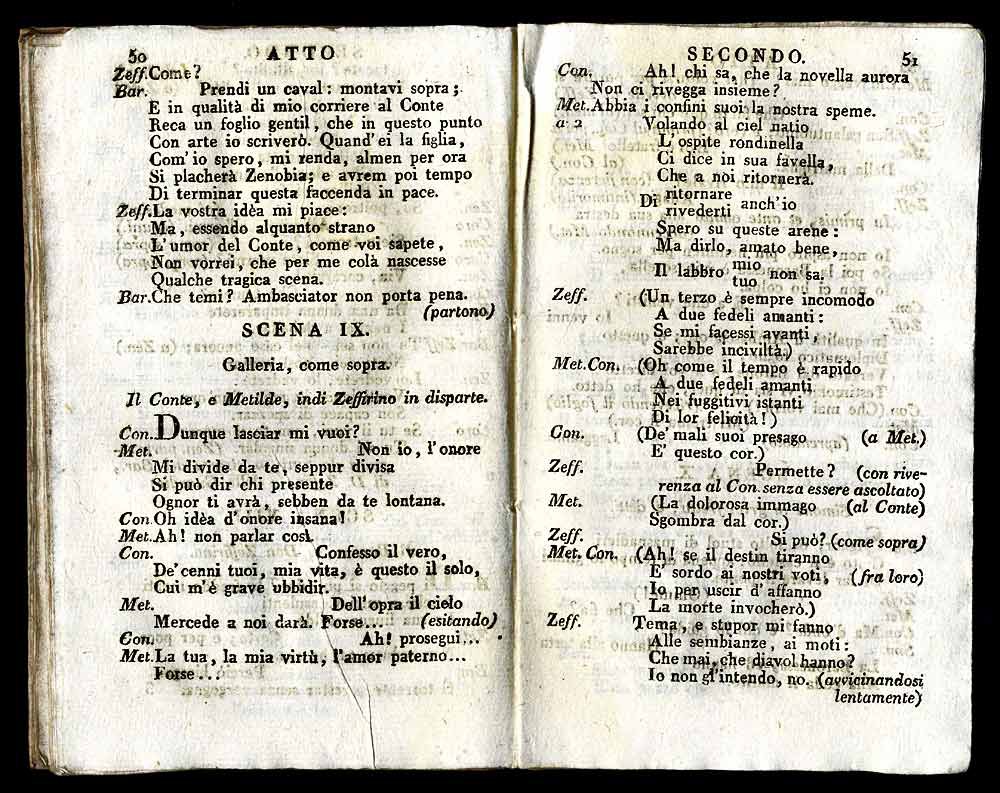 50 ATTO
Zeff.Come?
Bar. Prendi un caval: montavi sopra;
E in qualità di mio corriere al Conte
Reca un foglio gentil, che in questo punto
Con arte io scriverò. Quand'ei la figlia,
Com'io spero, mi renda, almen per ora
Si placherà Zenobia; e avrem poi tempo
Di terminar questa faccenda in pace.
Zeff.La vostra idèa mi piace:
Ma, essendo alquanto strano
L'umor del Conte, come voi sapete,
Non vorrei, che per me colà nascesse
Qualche tragica scena.
Bar.Che temi? Ambasciator non porta pena.
(partono)
SCENA IX.
Galleria, come sopra.
Il Conte, e Metilde, indi Zeffirino in disparte.
Con.Dunque lasciar mi vuoi?
Met. Non io, l'onore
Mi divide da te, seppur divisa
Si può dir chi presente
Ognor ti avrà, sebben da te lontana.
Con.Oh idèa d'onore insana!
Met.Ah! non parlar così.
Con. Confesso il vero,
De'cenni tuoi, mia vita, è questo il solo,
Cui m'è grave ubbidir.
Met. Dell'opra il cielo
Mercede a noi darà. Forse... (esitando)
Con. Ah! prosegui...
Met.La tua, la mia virtù, l'amor paterno...
Forse...
SECONDO. 51
Con. Ah! chi sa, che la novella aurora
Non ci rivegga insieme?
Met.Abbia i confini suoi la nostra speme.
a 2 Volando al ciel natio
L'ospite rondinella
Ci dice in sua favella,
Che a noi ritornerà.
Di ritornare anch'io
rivederti
Spero su queste arene:
Ma dirlo, amato bene,
Il labbro mio non sa.
tuo
Zeff. (Un terzo è sempre incomodo
A due fedeli amanti:
Se mi facessi avanti,
Sarebbe inciviltà.)
Met.Con. (Oh come il tempo è rapido
A due fedeli amanti
Nei fuggitivi istanti
Di lor felicità!)
Con. (De' mali suoi presago (a Met.)
E' questo cor.)
Zeff. Permette? (con rive-
renza al Con. senza essere ascoltato)
Met. (La dolorosa immago (al Conte)
Sgombra dal cor.)
Zeff. Si può? (come sopra)
Met. Con. (Ah! se il destin tiranno
E' sordo ai nostri voti, (fra loro)
Io per uscir d'affanno
La morte invocherò.)
Zeff. Tema, e stupor mi fanno
Alle sembianze, ai moti:
Che mai, che diavol hanno?
Io non gl'intendo, no. (avvicinandosi
lentamente)